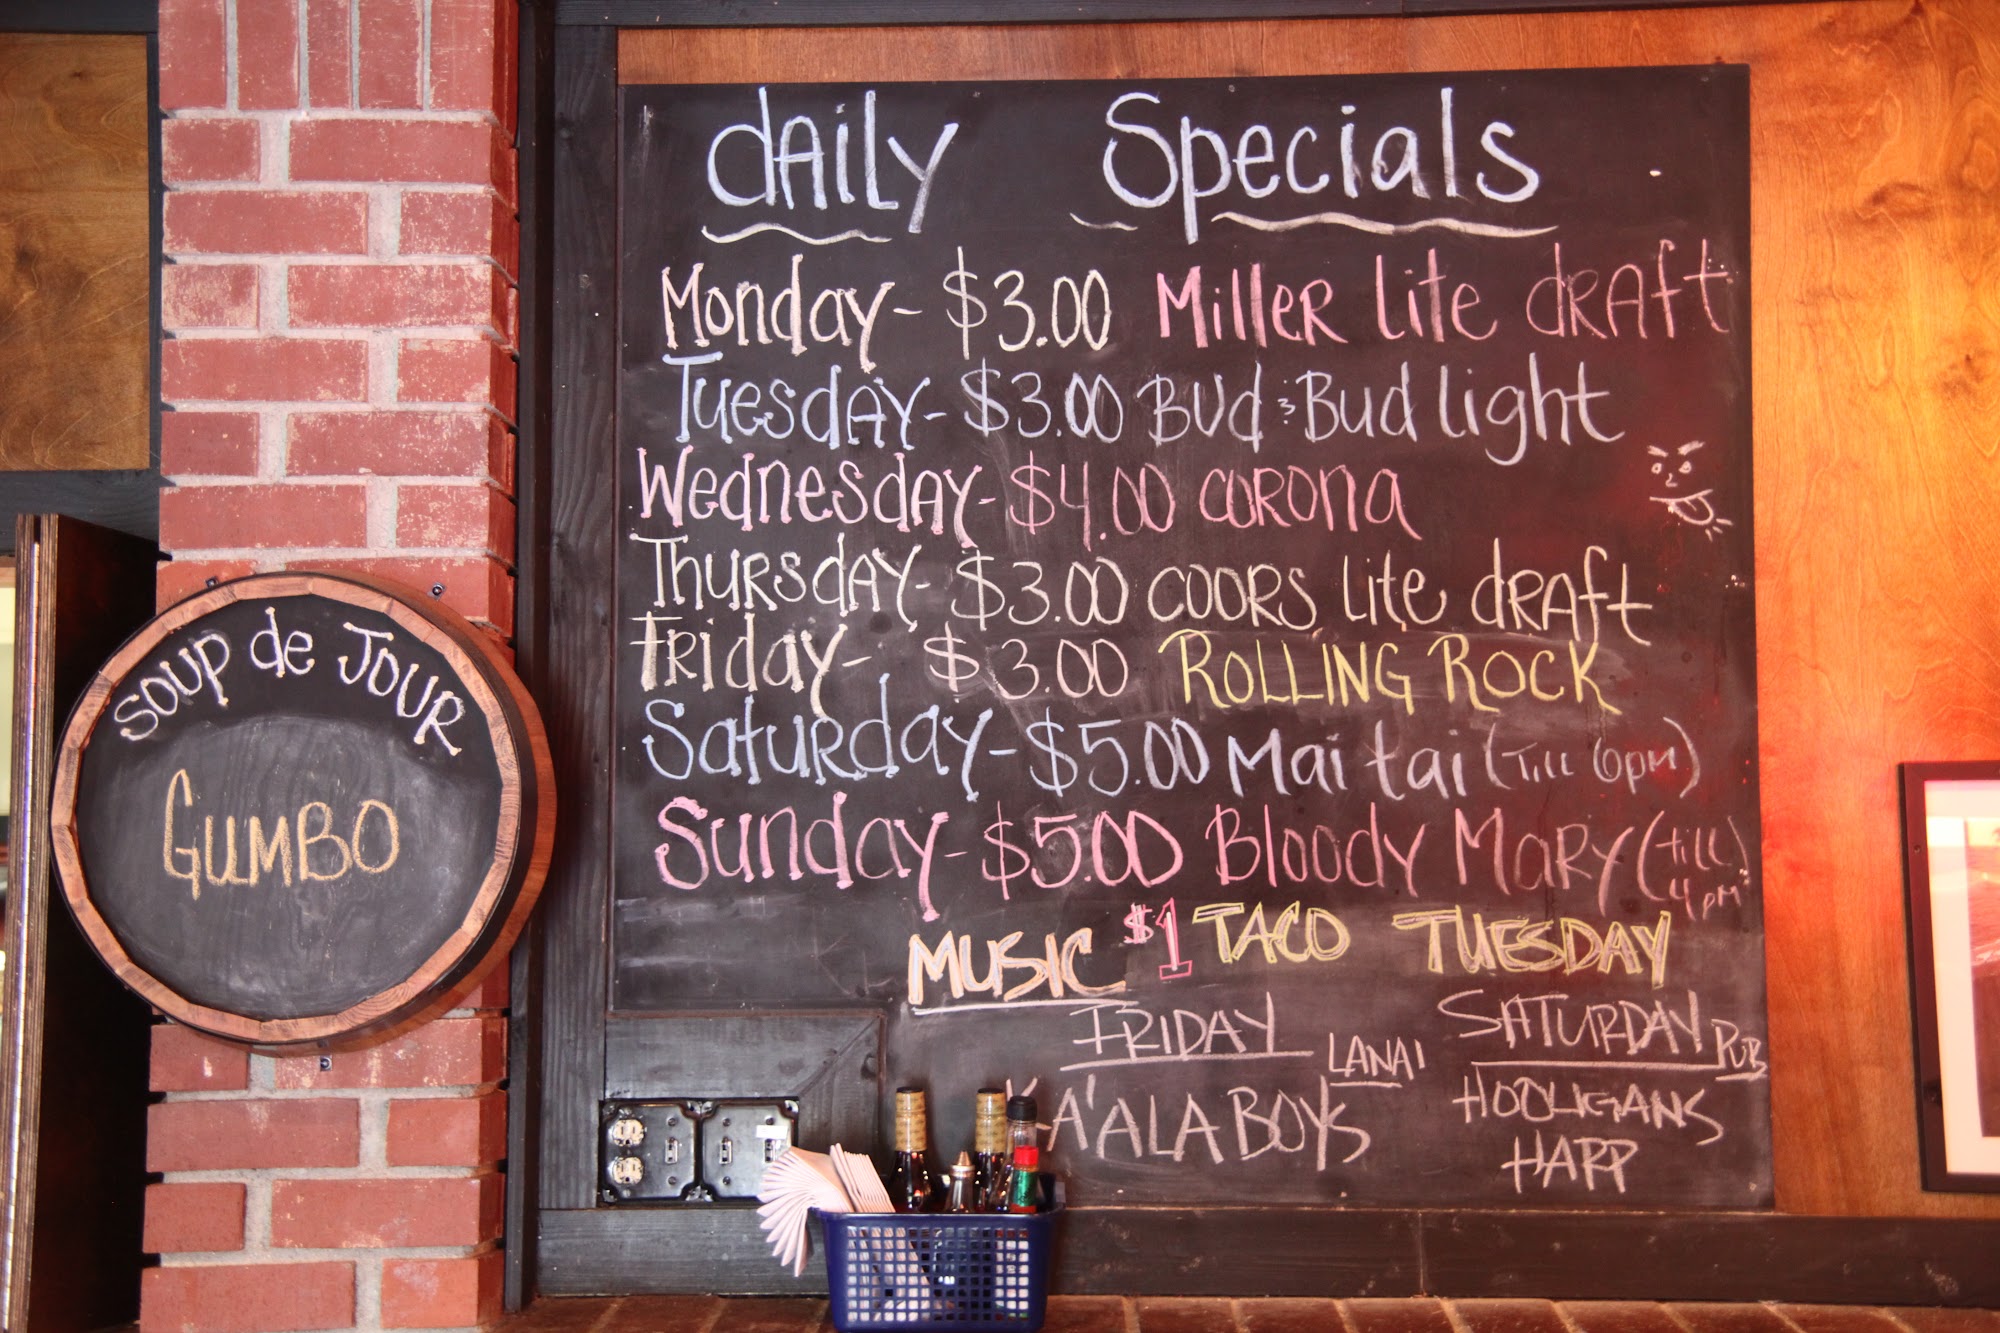 SOUP de JOUR
GUMBO
dAily Specials
Monday- $3.00 MilleR lite dRAft
TuesdAy- $3.00 BUd & Bud light
WednesdAy- $4.00 coRona
ThuRsdAy- $3.00 COORS lite dRAft
FRiday- $3.00 ROLLING ROCK
SatuRday- $5.00 Mai tai (Till 6pm)
Sunday- $5.00 Bloody MaRy (till 4pm)
$1 TACO TUESDAY
MUSIC
FRIDAY LANAI
KA'ALA BOYS
SATURDAY PUB
HOOLIGANS
HAPP